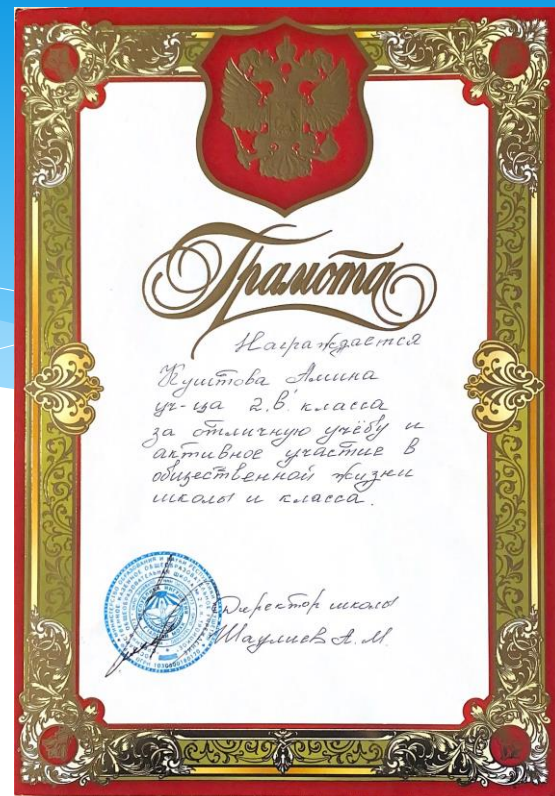 Грамота
Награждается
Куштова Амина
уч-ца 2„в" класса
за отличную учёбу и
активное участие в
общественной жизни
школы и класса.
Директор школы
Шаулиев А.М.